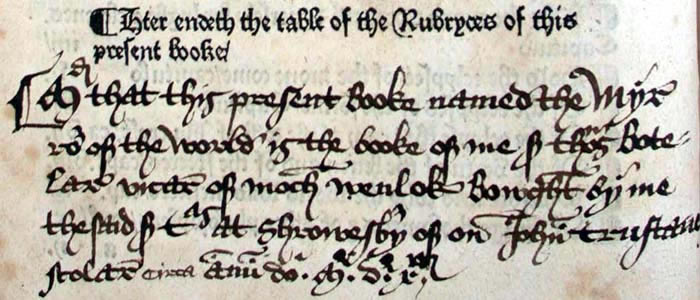 ¶ Hier endeth the table of the Rubryces of this
present booke/
¶ Md that this present booke named the Myr
ro of the World is the booke of me s thoms bote-
lar vicar of moch wenlok bowght by me
the said s Tas at shrowesby of on John
scolar circa annu do. M.